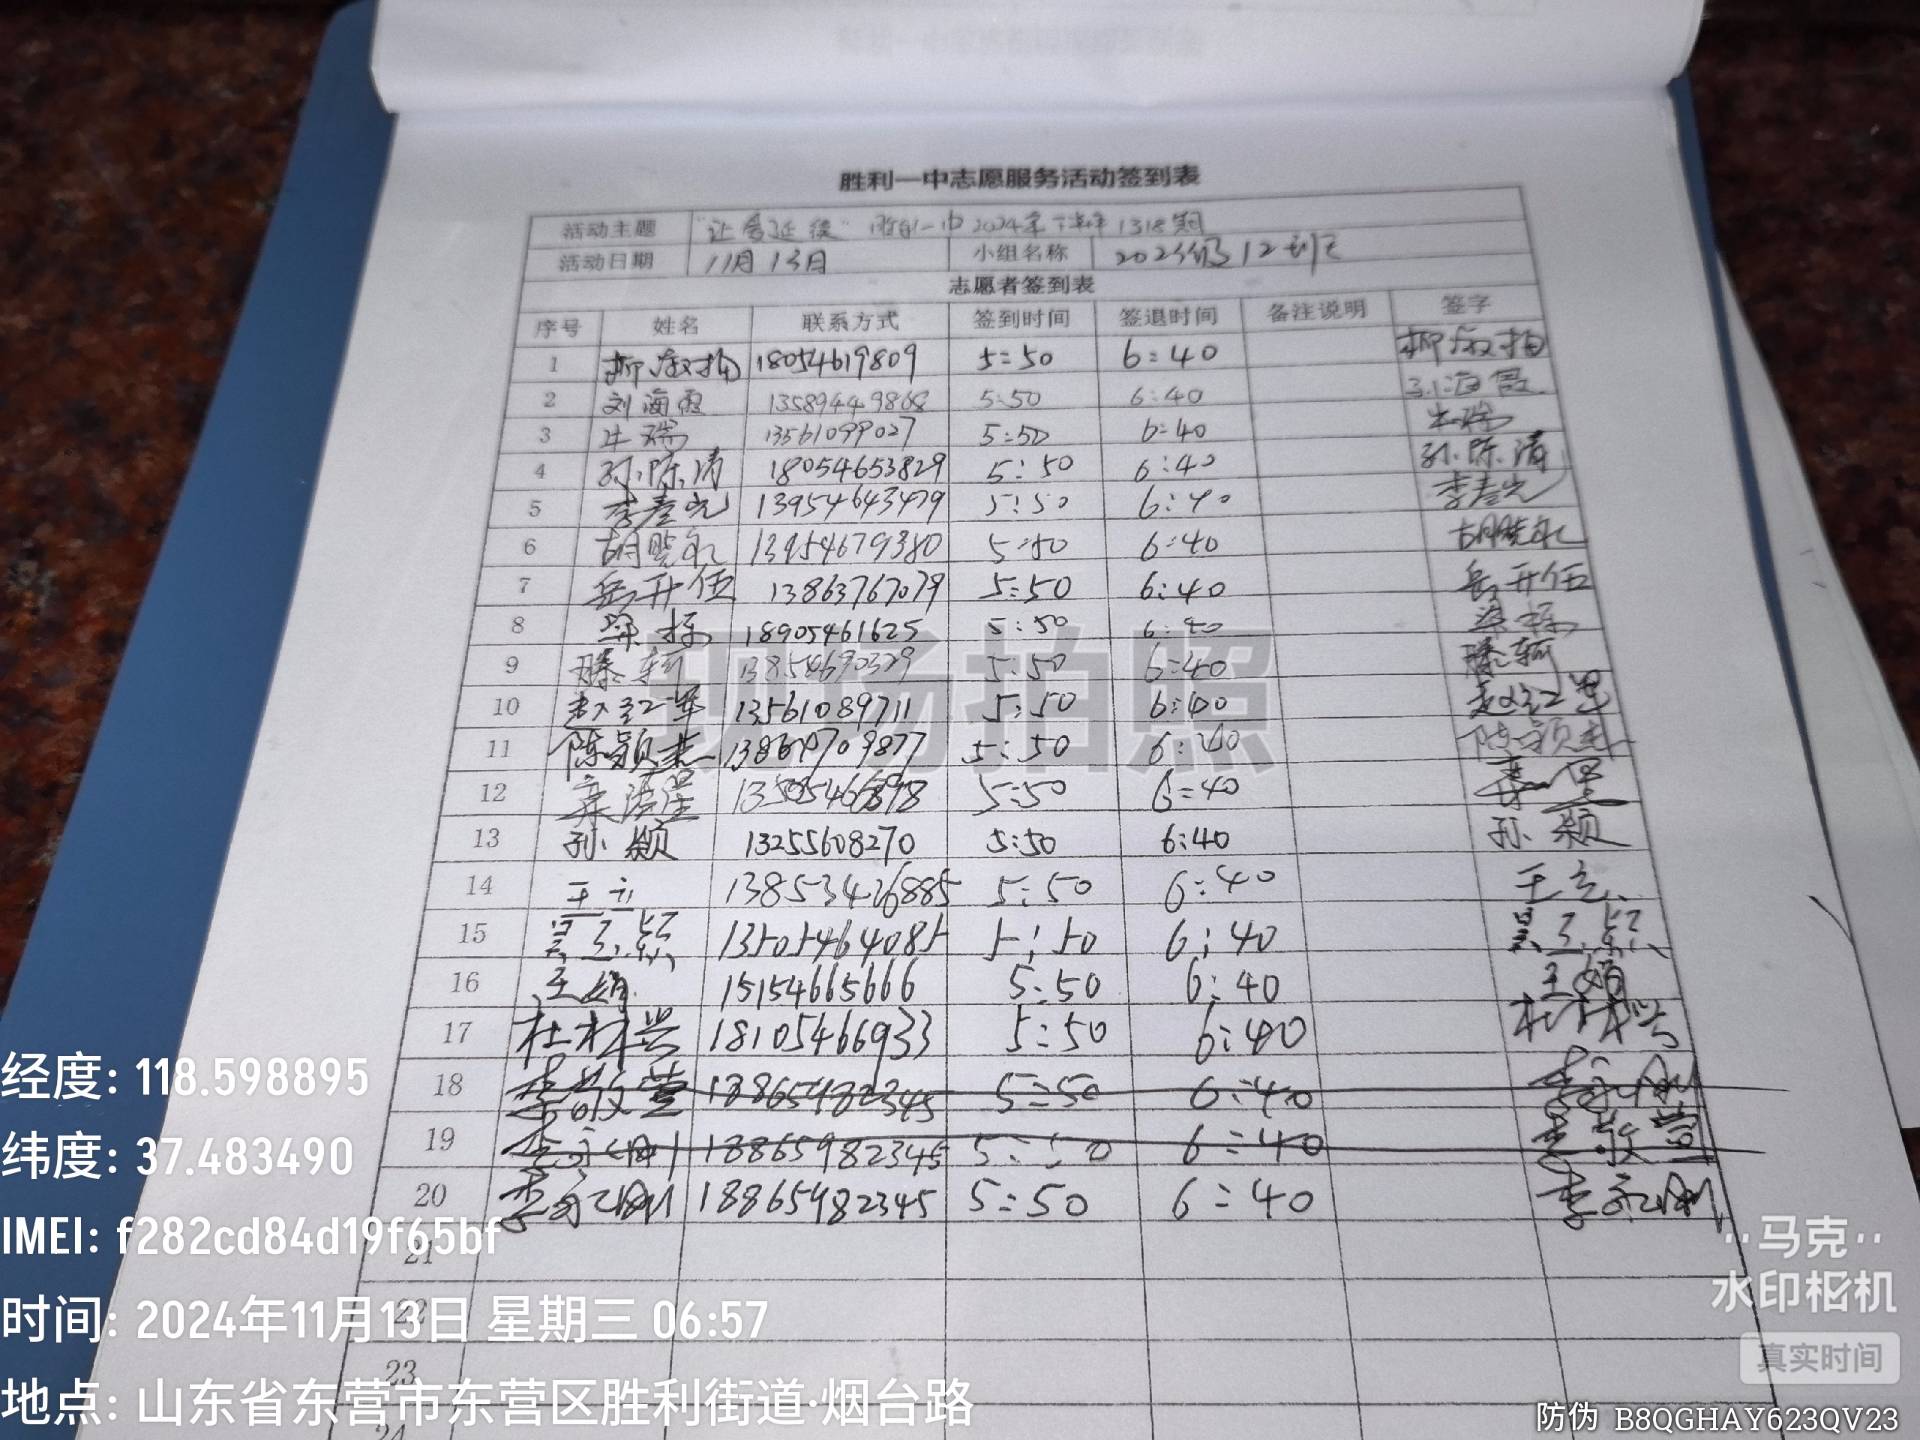 胜利一中志愿服务活动签到表
活动主题 "让爱延续" 胜利一中2024年下半年1318期
活动日期 11月13日 小组名称 2023级12班
志愿者签到表
序号 姓名 联系方式 签到时间 签退时间 备注说明 签字
1 18054619809 5:50 6:40
2 刘海霞 13589449868 5:50 6:40 刘海霞
3 牛瑞 13561099027 5:50 6:40 牛瑞
4 孙陈清 18054653829 5:50 6:40 孙陈清
5 李春光 13954643479 5:50 6:40 李春光
6 胡晓礼 13954679380 5:50 6:40 胡晓礼
7 岳升伍 13863767079 5:50 6:40 岳升伍
8 梁栋 18905461625 5:50 6:40 梁栋
9 滕轲 13854690329 5:50 6:40 滕轲
10 赵红军 13561089711 5:50 6:40 赵红军
11 陈颖杰 13864709877 5:50 6:40 陈颖杰
12 5:50 6:40
13 孙颖 13255608270 5:50 6:40 孙颖
14 王立 13853426885 5:50 6:40 王立
15 13505464085 5:50 6:40
16 王娟 15154665666 5:50 6:40 王娟
17 杜林兴 18105466933 5:50 6:40 杜林兴
18 李敬营 18865982345 5:50 6:40 李永刚
19 李永刚 18865982345 5:50 6:40 李敬营
20 李永刚 18865982345 5:50 6:40 李永刚
21
22
23
24
现场拍照
经度: 118.598895
纬度: 37.483490
IMEI: f282cd84d19f65bf
时间: 2024年11月13日 星期三 06:57
地点: 山东省东营市东营区胜利街道·烟台路
马克
水印相机
真实时间
防伪 B8QGHAY623QV23